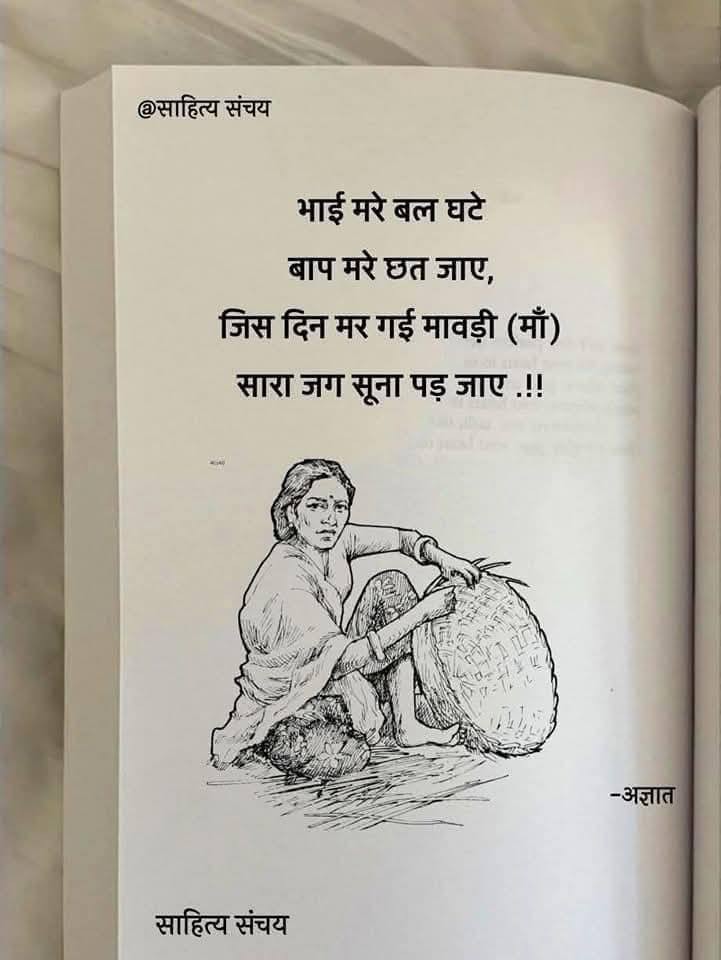 @साहित्य संचय
भाई मरे बल घटे
बाप मरे छत जाए,
जिस दिन मर गई मावड़ी (माँ)
सारा जग सूना पड़ जाए .!!
-अज्ञात
साहित्य संचय